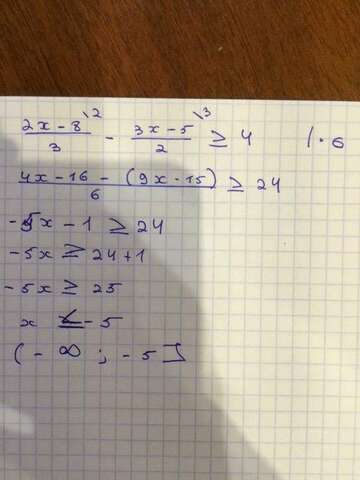 \2 \3
2x - 8 / 3 - 3x - 5 / 2 ≥ 4 | · 6
4x - 16 - (9x - 15) / 6 ≥ 24
-5x - 1 ≥ 24
-5x ≥ 24 + 1
-5x ≥ 25
x ≤ -5
(-∞ ; -5]